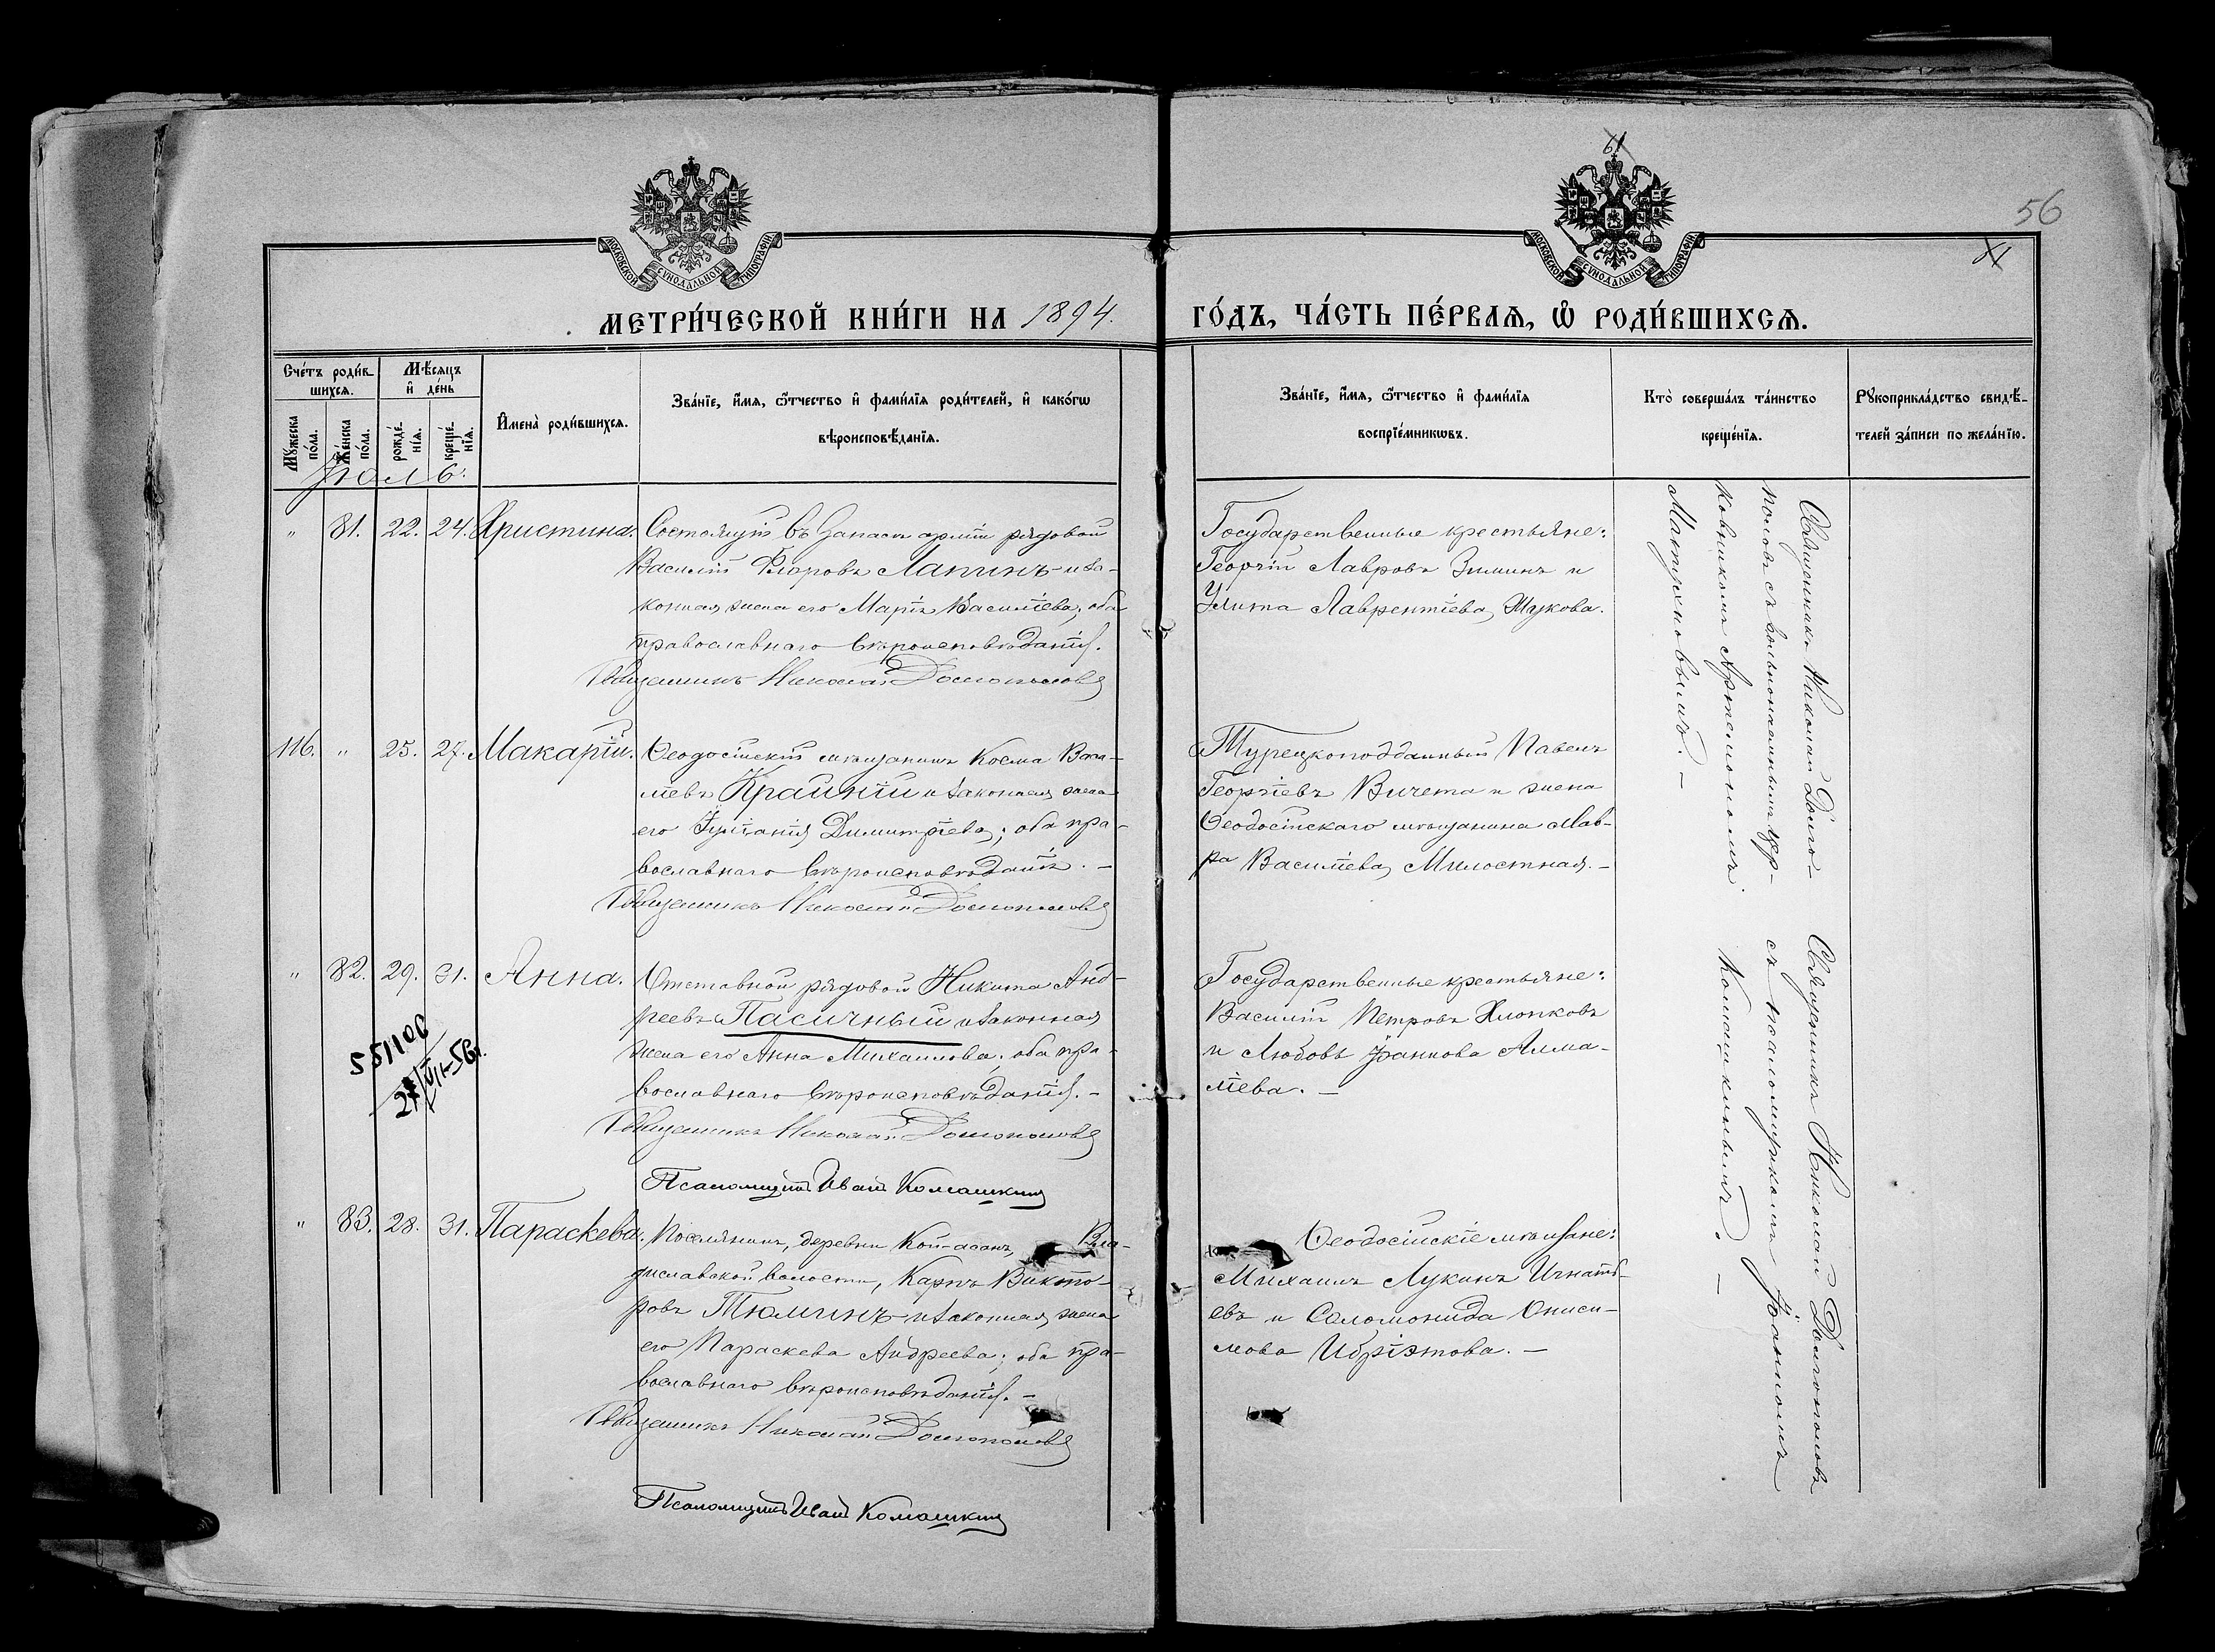 61
56
МОСКОВСКОЙ СѴНОДАЛЬНОЙ ТИПОГРАФІИ
МОСКОВСКОЙ СѴНОДАЛЬНОЙ ТИПОГРАФІИ
МЕТРИ́ЧЕСКОЙ КНИ́ГИ НА 1894.
ГО́ДЪ, ЧА́СТЬ ПЕ́РВАѦ, Ѡ РОДИ́ВШИХСѦ.
Сче́тъ роди́в
шихсѧ.
Мѣ́сѧцъ
и҆ де́нь
Мꙋ́жеска
по́ла.
Же́нска
по́ла.
рожде́
нїѧ.
креще́
нїѧ.
И҆мена̀ роди́вшихсѧ.
Зва́нїе, и҆́мѧ, ѻ҆́тчество и҆ фами́лїѧ роди́телей, и҆ како́гѡ
вѣроисповѣ́данїѧ.
Зва́нїе, и҆́мѧ, ѻ҆́тчество и҆ фами́лїѧ
воспрїе́мникѡвъ.
Кто̀ соверша́лъ та́инство
креще́нїѧ.
Рꙋкоприкла́дство свидѣ́-
телей за́писи по жела́нїю.
Іюль:
" 81. 22. 24. Христина.
Состоящій въ запасѣ арміи рядовой
Василій Флоровъ Лапинъ и за-
конная жена его Марія Васильева, оба
православнаго вѣроисповѣданія.
Священникъ Николай Долгополовъ
Государственные крестьяне:
Георгій Лавровъ Зиминъ и
Улита Лаврентіева Жукова.
Священникъ Николай Долго-
половъ съ вольнонаемнымъ цер-
ковникомъ
116. " 25. 27. Макарій.
Ѳеодосійскій мѣщанинъ Косма Васи-
ліевъ Крайній и законная жена
его Іуліанія Димитріева; оба пра-
вославнаго вѣроисповѣданія. -
Священникъ Николай Долгополовъ
Турецкоподданный Павелъ
Георгіевъ Вичета и жена
Ѳеодосійскаго мѣщанина Мав-
ра Василіева Милостная. -
" 82. 29. 31. Анна.
Отставной рядовой Никита Анд-
реевъ Пасичный и законная
жена его Анна Михаилова; оба пра-
вославнаго вѣроисповѣданія. -
Священникъ Николай Долгополовъ
Псаломщикъ Иванъ Комашкинъ
551100
27/VII-56г.
Государственные крестьяне:
Василій Петровъ Хлопковъ
и Любовь Іоаннова Алма-
ліева. -
Священникъ Николай Долгополовъ
съ псаломщикомъ Іоанномъ
Комашкинымъ. -
" 83. 28. 31. Параскева.
Поселянинъ, деревни Кой-асанъ, Вла-
диславской волости, Карпъ Викто-
ровъ Тюминъ и законная жена
его Параскева Андреева; оба пра-
вославнаго вѣроисповѣданія. -
Священникъ Николай Долгополовъ
Псаломщикъ Иванъ Комашкинъ
Ѳеодосійскіе мѣщане:
Михаилъ Лукинъ Игнать-
евъ и Соломонида Ониси-
мова